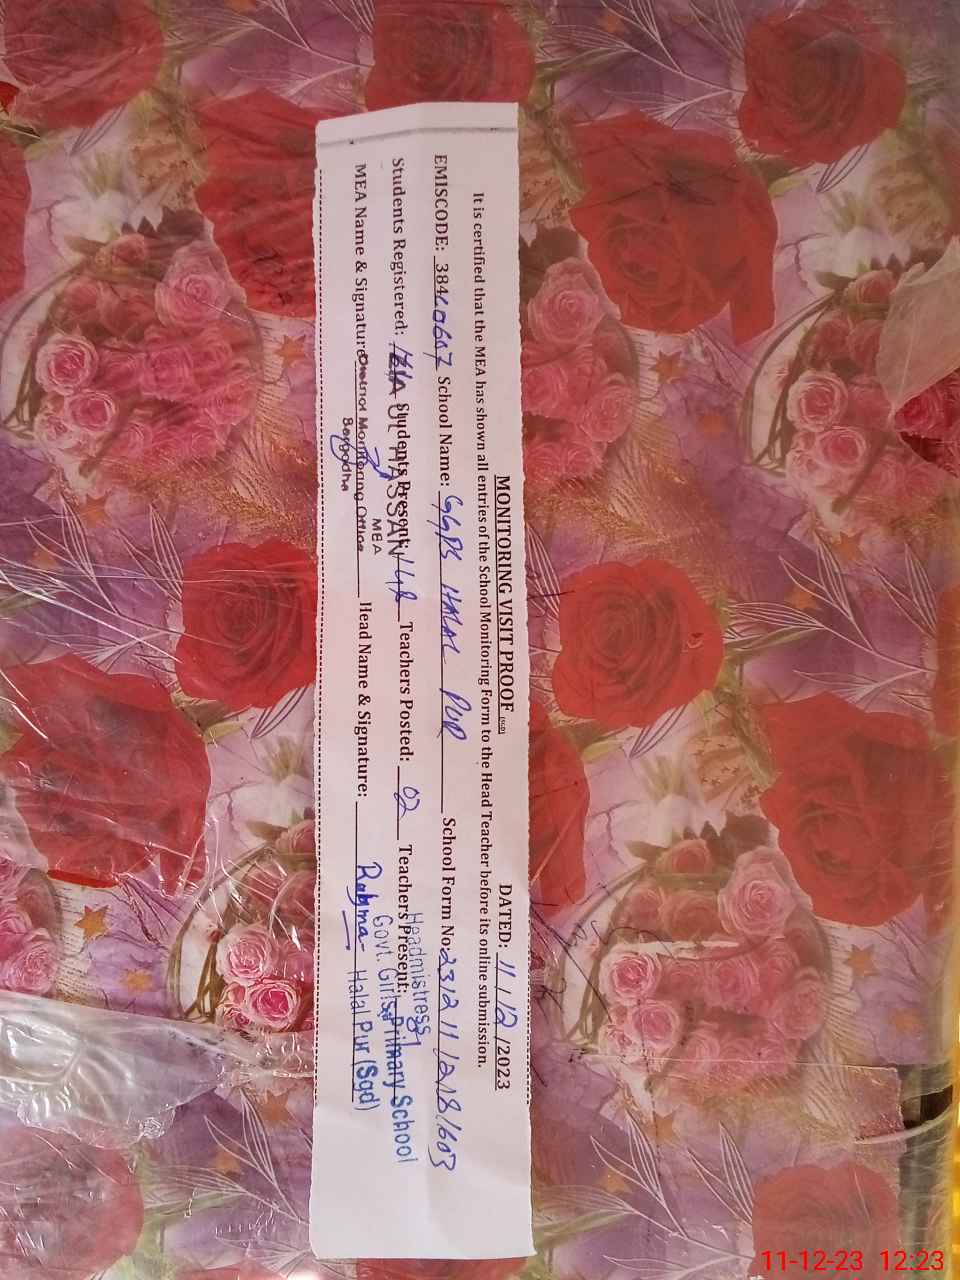 MONITORING VISIT PROOF (SGD) DATED: 11/12/2023
It is certified that the MEA has shown all entries of the School Monitoring Form to the Head Teacher before its online submission.
EMISCODE: School Name: GGPS HALAL PUR School Form No:
Students Registered: Students Present: Teachers Posted: 02 Teachers Present:
UL HASSAN
MEA
MEA Name & Signature Head Name & Signature: Rahma
District Monitoring Office
Sargodha
Headmistress
Govt. Girls Primary School
Halal Pur (Sgd)
11-12-23 12:23